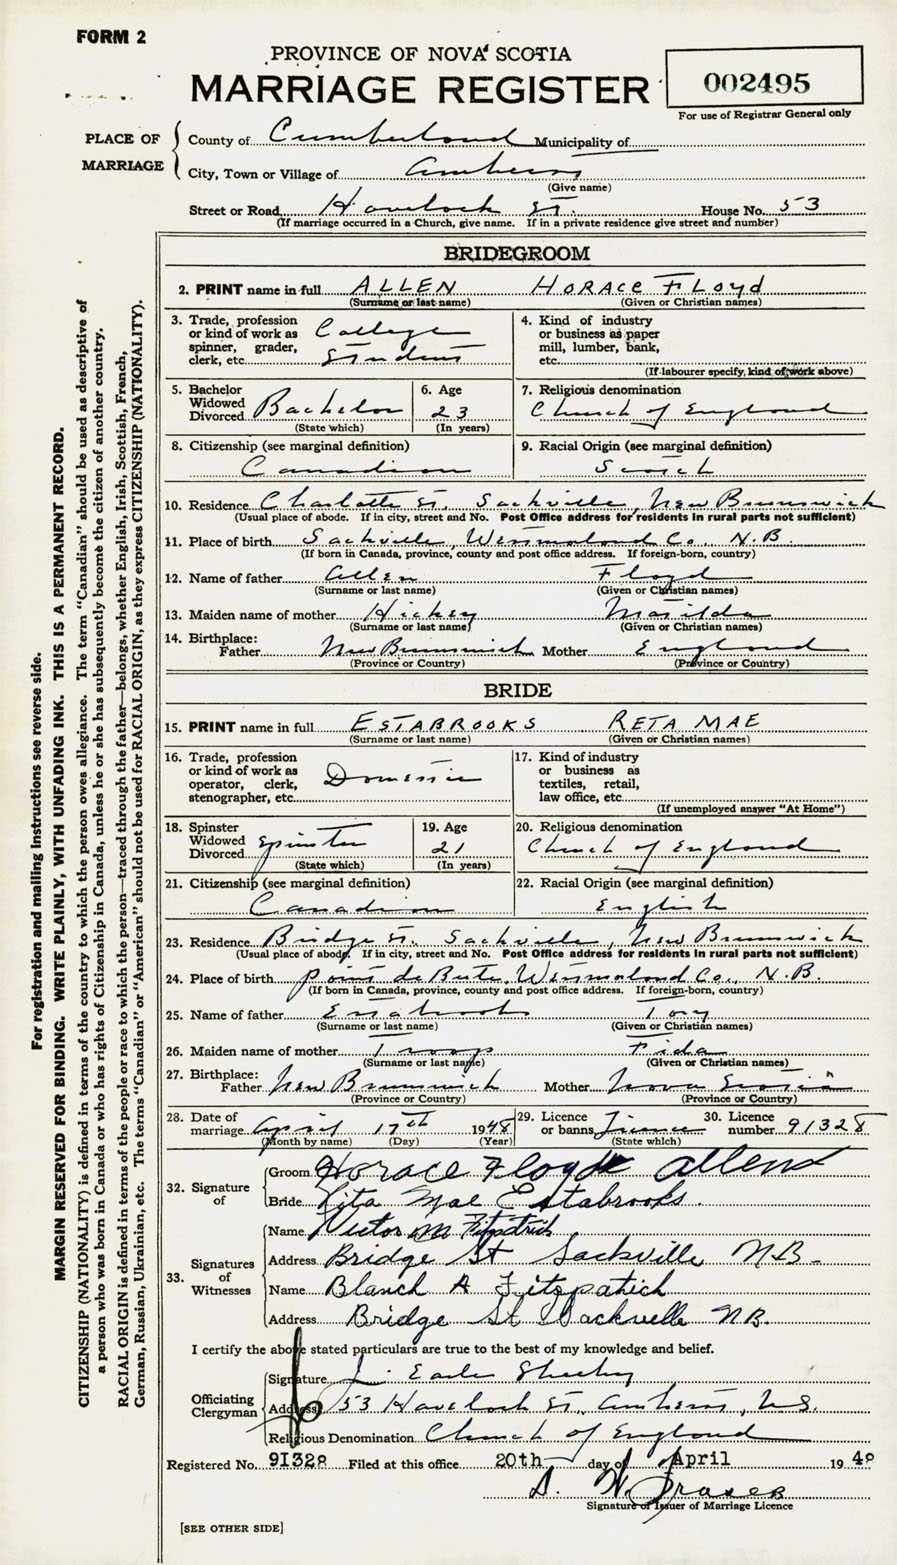 FORM 2
PROVINCE OF NOVA SCOTIA
MARRIAGE REGISTER
002495
For use of Registrar General only
PLACE OF MARRIAGE
County of Cumberland Municipality of
City, Town or Village of Amherst
(Give name)
Street or Road Havelock St. House No. 53
(If marriage occurred in a Church, give name. If in a private residence give street and number)
BRIDEGROOM
2. PRINT name in full ALLEN HORACE FLOYD
(Surname or last name) (Given or Christian names)
3. Trade, profession or kind of work as spinner, grader, clerk, etc. College Student
4. Kind of industry or business as paper mill, lumber, bank, etc.
(If labourer specify, kind of work above)
5. Bachelor Widowed Divorced Bachelor
(State which)
6. Age 23
(In years)
7. Religious denomination
Church of England
8. Citizenship (see marginal definition)
Canadian
9. Racial Origin (see marginal definition)
Scotch
10. Residence Charlotte St. Sackville, New Brunswick
(Usual place of abode. If in city, street and No. Post Office address for residents in rural parts not sufficient)
11. Place of birth Sackville, Westmorland Co., N.B.
(If born in Canada, province, county and post office address. If foreign-born, country)
12. Name of father Allen Floyd
(Surname or last name) (Given or Christian names)
13. Maiden name of mother Hickey Matilda
(Surname or last name) (Given or Christian names)
14. Birthplace:
Father New Brunswick Mother England
(Province or Country) (Province or Country)
BRIDE
15. PRINT name in full ESTABROOKS RETA MAE
(Surname or last name) (Given or Christian names)
16. Trade, profession or kind of work as operator, clerk, stenographer, etc. Domestic
17. Kind of industry or business as textiles, retail, law office, etc.
(If unemployed answer "At Home")
18. Spinster Widowed Divorced Spinster
(State which)
19. Age 21
(In years)
20. Religious denomination
Church of England
21. Citizenship (see marginal definition)
Canadian
22. Racial Origin (see marginal definition)
English
23. Residence Bridge St. Sackville, New Brunswick
(Usual place of abode. If in city, street and No. Post Office address for residents in rural parts not sufficient)
24. Place of birth Point de Bute, Westmorland Co., N.B.
(If born in Canada, province, county and post office address. If foreign-born, country)
25. Name of father Estabrooks
(Surname or last name) (Given or Christian names)
26. Maiden name of mother Troop Fida
(Surname or last name) (Given or Christian names)
27. Birthplace:
Father New Brunswick Mother Nova Scotia
(Province or Country) (Province or Country)
28. Date of marriage April 17th 1948
(Month by name) (Day) (Year)
29. Licence or banns License
(State which)
30. Licence number 91328
32. Signature of
Groom Horace Floyd Allen
Bride Rita Mae Estabrooks.
33. Signatures of Witnesses
Name Victor M Fitzpatrick
Address Bridge St Sackville N.B.
Name Blanch A Fitzpatrick
Address Bridge St Sackville NB.
I certify the above stated particulars are true to the best of my knowledge and belief.
Officiating Clergyman
Signature J. Earle
Address 53 Havelock St., Amherst, N.S.
Religious Denomination Church of England
Registered No. 91328 Filed at this office 20th day of April 1948
D. W. Fraser
Signature of Issuer of Marriage Licence
[SEE OTHER SIDE]
For registration and mailing instructions see reverse side.
MARGIN RESERVED FOR BINDING. WRITE PLAINLY, WITH UNFADING INK. THIS IS A PERMANENT RECORD.
CITIZENSHIP (NATIONALITY) is defined in terms of the country to which the person owes allegiance. The term "Canadian" should be used as descriptive of
a person who was born in Canada or who has rights of Citizenship in Canada, unless he or she has subsequently become the citizen of another country.
RACIAL ORIGIN is defined in terms of the people or race to which the person—traced through the father—belongs, whether English, Irish, Scottish, French,
German, Russian, Ukrainian, etc. The terms "Canadian" or "American" should not be used for RACIAL ORIGIN, as they express CITIZENSHIP (NATIONALITY).